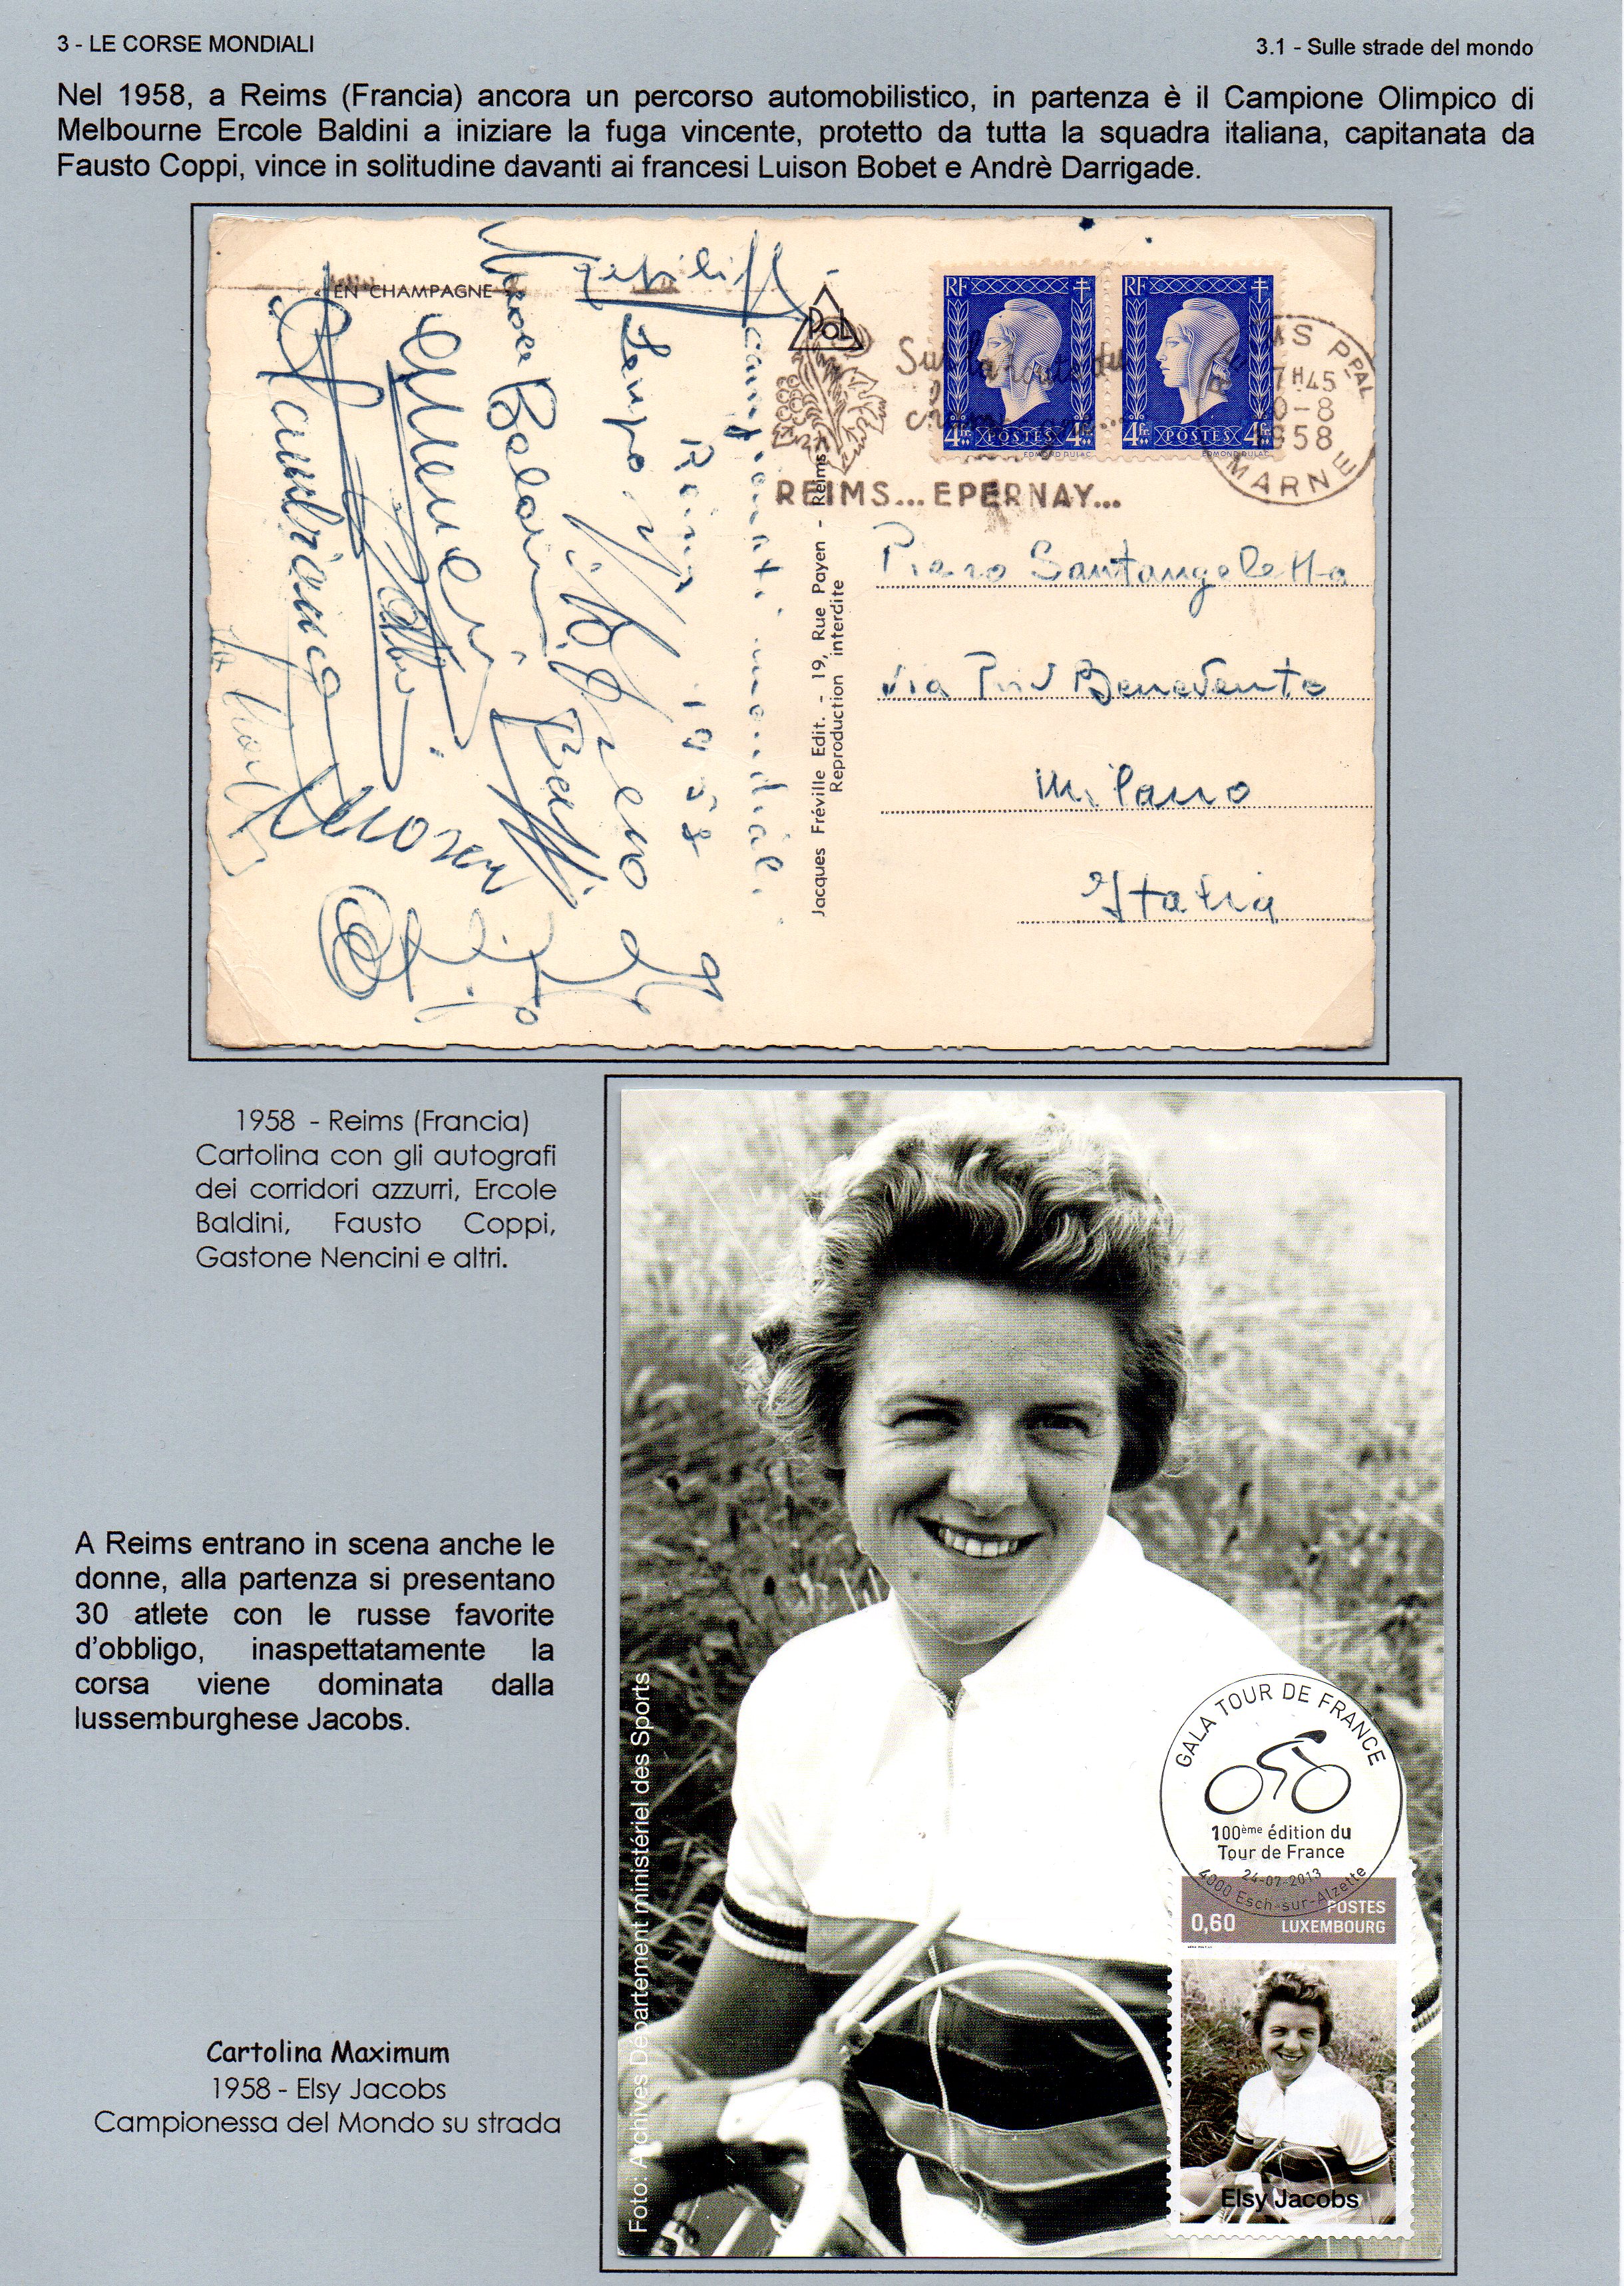 3 - LE CORSE MONDIALI
3.1 - Sulle strade del mondo
Nel 1958, a Reims (Francia) ancora un percorso automobilistico, in partenza è il Campione Olimpico di
Melbourne Ercole Baldini a iniziare la fuga vincente, protetto da tutta la squadra italiana, capitanata da
Fausto Coppi, vince in solitudine davanti ai francesi Luison Bobet e Andrè Darrigade.
EN CHAMPAGNE
PoL
Sur la route du
REIMS... EPERNAY...
RF
4Fr POSTES 4Fr
EDMOND DULAC
RF
4Fr POSTES 4Fr
EDMOND DULAC
PPAL
7H45
-8
1958
MARNE
campionati mondiali
Reims 1958
Jacques Fréville Edit. - 19, Rue Payen - Reims
Reproduction interdite
Piero Santangeletta
Via Benevento
Milano
Italia
1958 - Reims (Francia)
Cartolina con gli autografi
dei corridori azzurri, Ercole
Baldini, Fausto Coppi,
Gastone Nencini e altri.
A Reims entrano in scena anche le
donne, alla partenza si presentano
30 atlete con le russe favorite
d'obbligo, inaspettatamente la
corsa viene dominata dalla
lussemburghese Jacobs.
Cartolina Maximum
1958 - Elsy Jacobs
Campionessa del Mondo su strada
Foto: Archives Département ministériel des Sports
GALA TOUR DE FRANCE
100ème édition du
Tour de France
24-07-2013
4000 Esch-sur-Alzette
0,60
POSTES
LUXEMBOURG
Elsy Jacobs